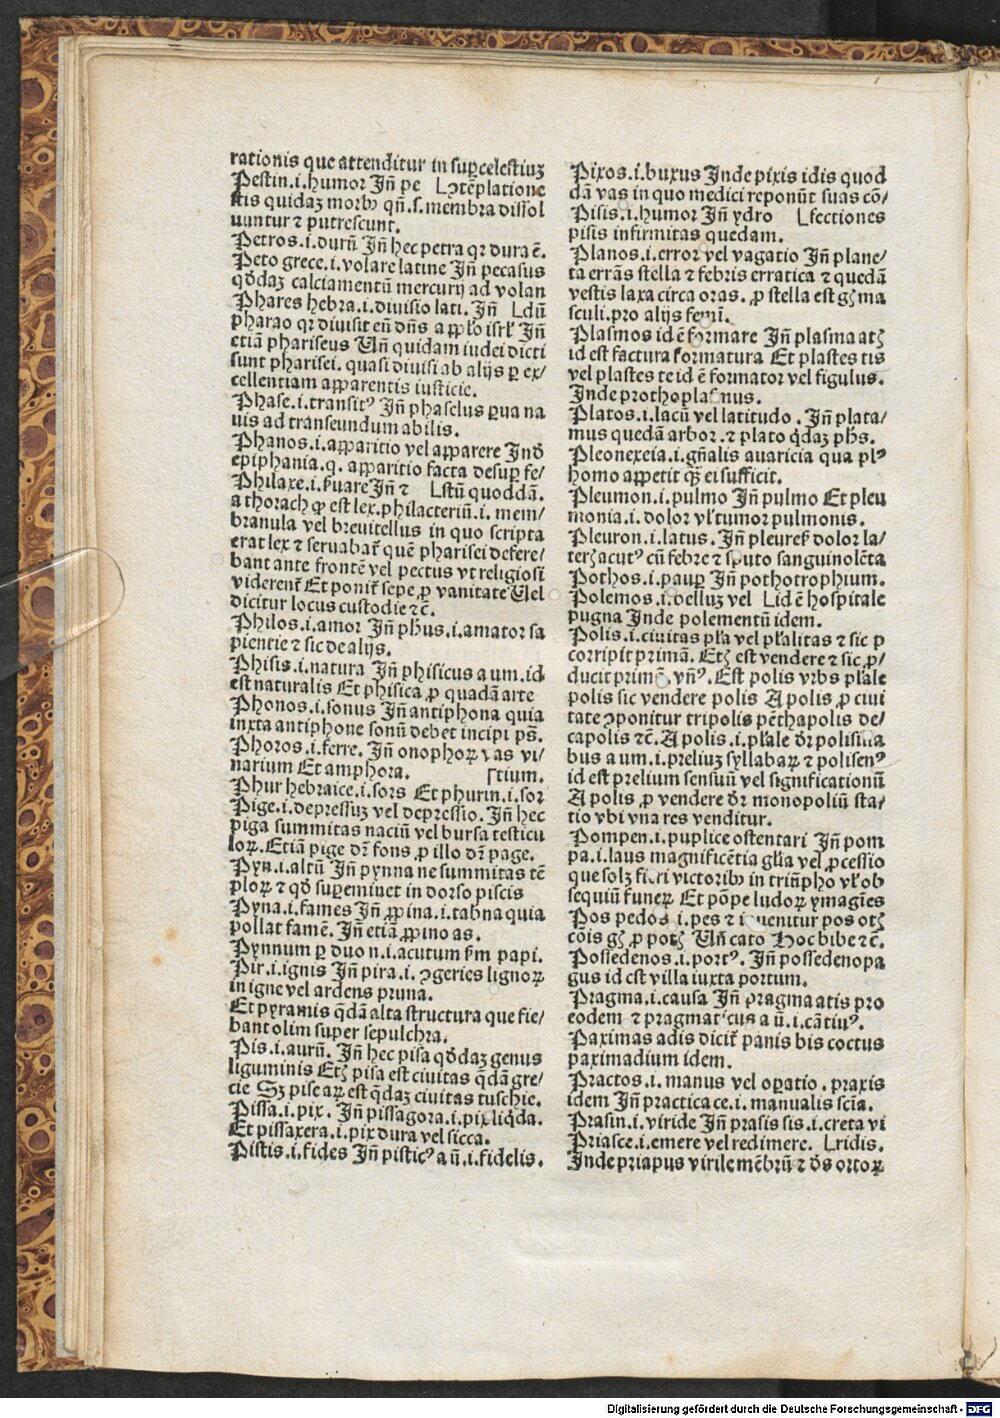 rationis que attenditur in suꝑcelestiuꝫ
Pestin.i.humor Jn̄ pe Lↄtēplatione
stis quidaꝫ morbꝰ qn̄.s.membra dissol
uuntur ⁊ putrescunt.
Petros.i.durū Jn̄ hec petra qꝛ dura ē.
Peto grece.i.volare latine Jn̄ pecasus
q̄daꝫ calciamentū mercurij ad volan
Phares hebra.i.diuisio lati. Jn̄ Ldū
pharao qꝛ diuisit eū dn̄s a ppło isrł Jn̄
etiā phariseus Un̄ quidam iudei dicti
sunt pharisei. quasi diuisi ab alijs ꝑ ex/
cellentiam apparentis iusticie.
Phase.i.transitꝰ Jn̄ phaselus ꝑua na
uis ad transeundum abilis.
Phanos.i.apparitio vel apparere Jnd̄
epiphania.q. apparitio facta desuꝑ fe/
Philaxe.i.ẜuare Jn̄ ⁊ Lstū quoddā.
a thorach ꝙ est lex.philacteriū.i. mem/
branula vel breuitellus in quo scripta
erat lex ⁊ seruabat̄ quē pharisei defere/
bant ante frontē vel pectus vt religiosi
viderent̄ Et ponit̄ sepe ꝓ vanitate Uel
dicitur locus custodie ⁊c̄.
Philos.i.amor Jn̄ phus.i.amator sa
pientie ⁊ sic de alijs.
Phisis.i.natura Jn̄ phisicus a um.id
est naturalis Et phisica ꝓ quadā arte
Phonos.i.sonus Jn̄ antiphona quia
iuxta antiphone sonū debet incipi ps̄.
Phoros.i.ferre. Jn̄ onophoꝝ vas vi/
narium Et amphora. ſtium.
Phur hebraice.i.sors Et phurin.i.sor
Pige.i.depressuꝫ vel depressio. Jn̄ hec
piga summitas naciū vel bursa testicu
loꝝ. Etiā pige dr̄ fons ꝓ illo dr̄ page.
Pyn.i.altū Jn̄ pynna ne summitas tē
ploꝝ ⁊ qd̄ suꝑeminet in dorso piscis
Pyna.i.fames Jn̄ ꝓpina.i.tabna quia
pollat famē. Jn̄ etiā ꝓpino as.
Pynnum ꝑ duo n.i.acutum ẜm papi.
Pir.i.ignis Jn̄ pira.i.ↄgeries lignoꝝ
in igne vel ardens pruna.
Et pyramis q̄dā alta structura que fie/
bant olim super sepulchra.
Pis.i.aurū. Jn̄ hec pisa q̄daꝫ genus
liguminis Etꝫ pisa est ciuitas q̄dā gre/
cie Sꝫ pise aꝝ est q̄daꝫ ciuitas tuschie.
Pissa.i.pix. Jn̄ pissagora.i.pix liq̄da.
Et pissaxera.i.pix dura vel sicca.
Pistis.i.fides Jn̄ pisticꝰ a ū.i.fidelis.
Pixos.i.buxus Jnde pixis idis quod
dā vas in quo medici reponūt suas cō/
Pisis.i.humor Jn̄ ydro Lfectiones
pisis infirmitas quedam.
Planos.i.error vel vagatio Jn̄ plane/
ta errās stella ⁊ febris erratica ⁊ quedā
vestis laxa circa oras. ꝓ stella est gꝫ ma
sculi.pro alijs femī.
Plasmos id ē formare Jn̄ plasma atꝫ
id est factura formatura Et plastes tis
vel plastes te id ē formator vel figulus.
Jnde prothoplasnus.
Platos.i.lacū vel latitudo. Jn̄ plata/
mus quedā arbor.⁊ plato q̄daꝫ phs.
Pleonexeia.i.gn̄alis auaricia qua plꝰ
homo appetit qꝫ̄ ei sufficit.
Pleumon.i.pulmo Jn̄ pulmo Et pleu
monia.i.dolor vł tumor pulmonis.
Pleuron.i.latus. Jn̄ pleures̄ dolor la/
terꝫ acutꝰ cū febre ⁊ sputo sanguinolēta
Pothos.i.pauꝑ Jn̄ pothotrophium.
Polemos.i.belluꝫ vel Lid ē hospitale
pugna Jnde polementū idem.
Polis.i.ciuitas płra vel płralitas ⁊ sic p
corripit primā. Etꝫ est vendere ⁊ sic ꝓ/
ducit primā.vn̄ꝰ. Est polis vrbs płrale
polis sic vendere polis A polis ꝓ ciui
tate ↄponitur tripolis pēthapolis de/
capolis ⁊c̄. A polis.i.płrale dr̄ polisilla
bus a um.i.preliuꝫ syllabaꝝ ⁊ polisenꝰ
id est prelium sensuū vel significationū
A polis ꝓ vendere dr̄ monopoliū sta/
tio vbi vna res venditur.
Pompen.i.puplice ostentari Jn̄ pom
pa.i.laus magnificētia głia vel ꝓcessio
que solꝫ fieri victoribꝰ in triūpho vł ob
sequiū funeꝝ Et pōpe ludoꝝ ymagīes
Pos pedos i.pes ⁊ inuenitur pos otꝫ
cōis gꝫ ꝓ potꝫ Un̄ cato Hoc bibe ⁊c̄.
Possedenos.i.portꝰ. Jn̄ possedenopa
gus id est villa iuxta portum.
Pragma.i.causa Jn̄ pragma atis pro
eodem ⁊ pragmaticus a ū.i.cātiuꝰ.
Paximas adis dicit̄ panis bis coctus
paximadium idem.
Practos.i. manus vel oꝑatio. praxis
idem Jn̄ practica ce.i. manualis scīa.
Prasin.i.viride Jn̄ prasis sis.i.creta vi
Priasce.i.emere vel redimere. Lridis.
Jnde priapus virile mēbrū ⁊ ds̄ ortoꝝ
Digitalisierung gefördert durch die Deutsche Forschungsgemeinschaft - DFG